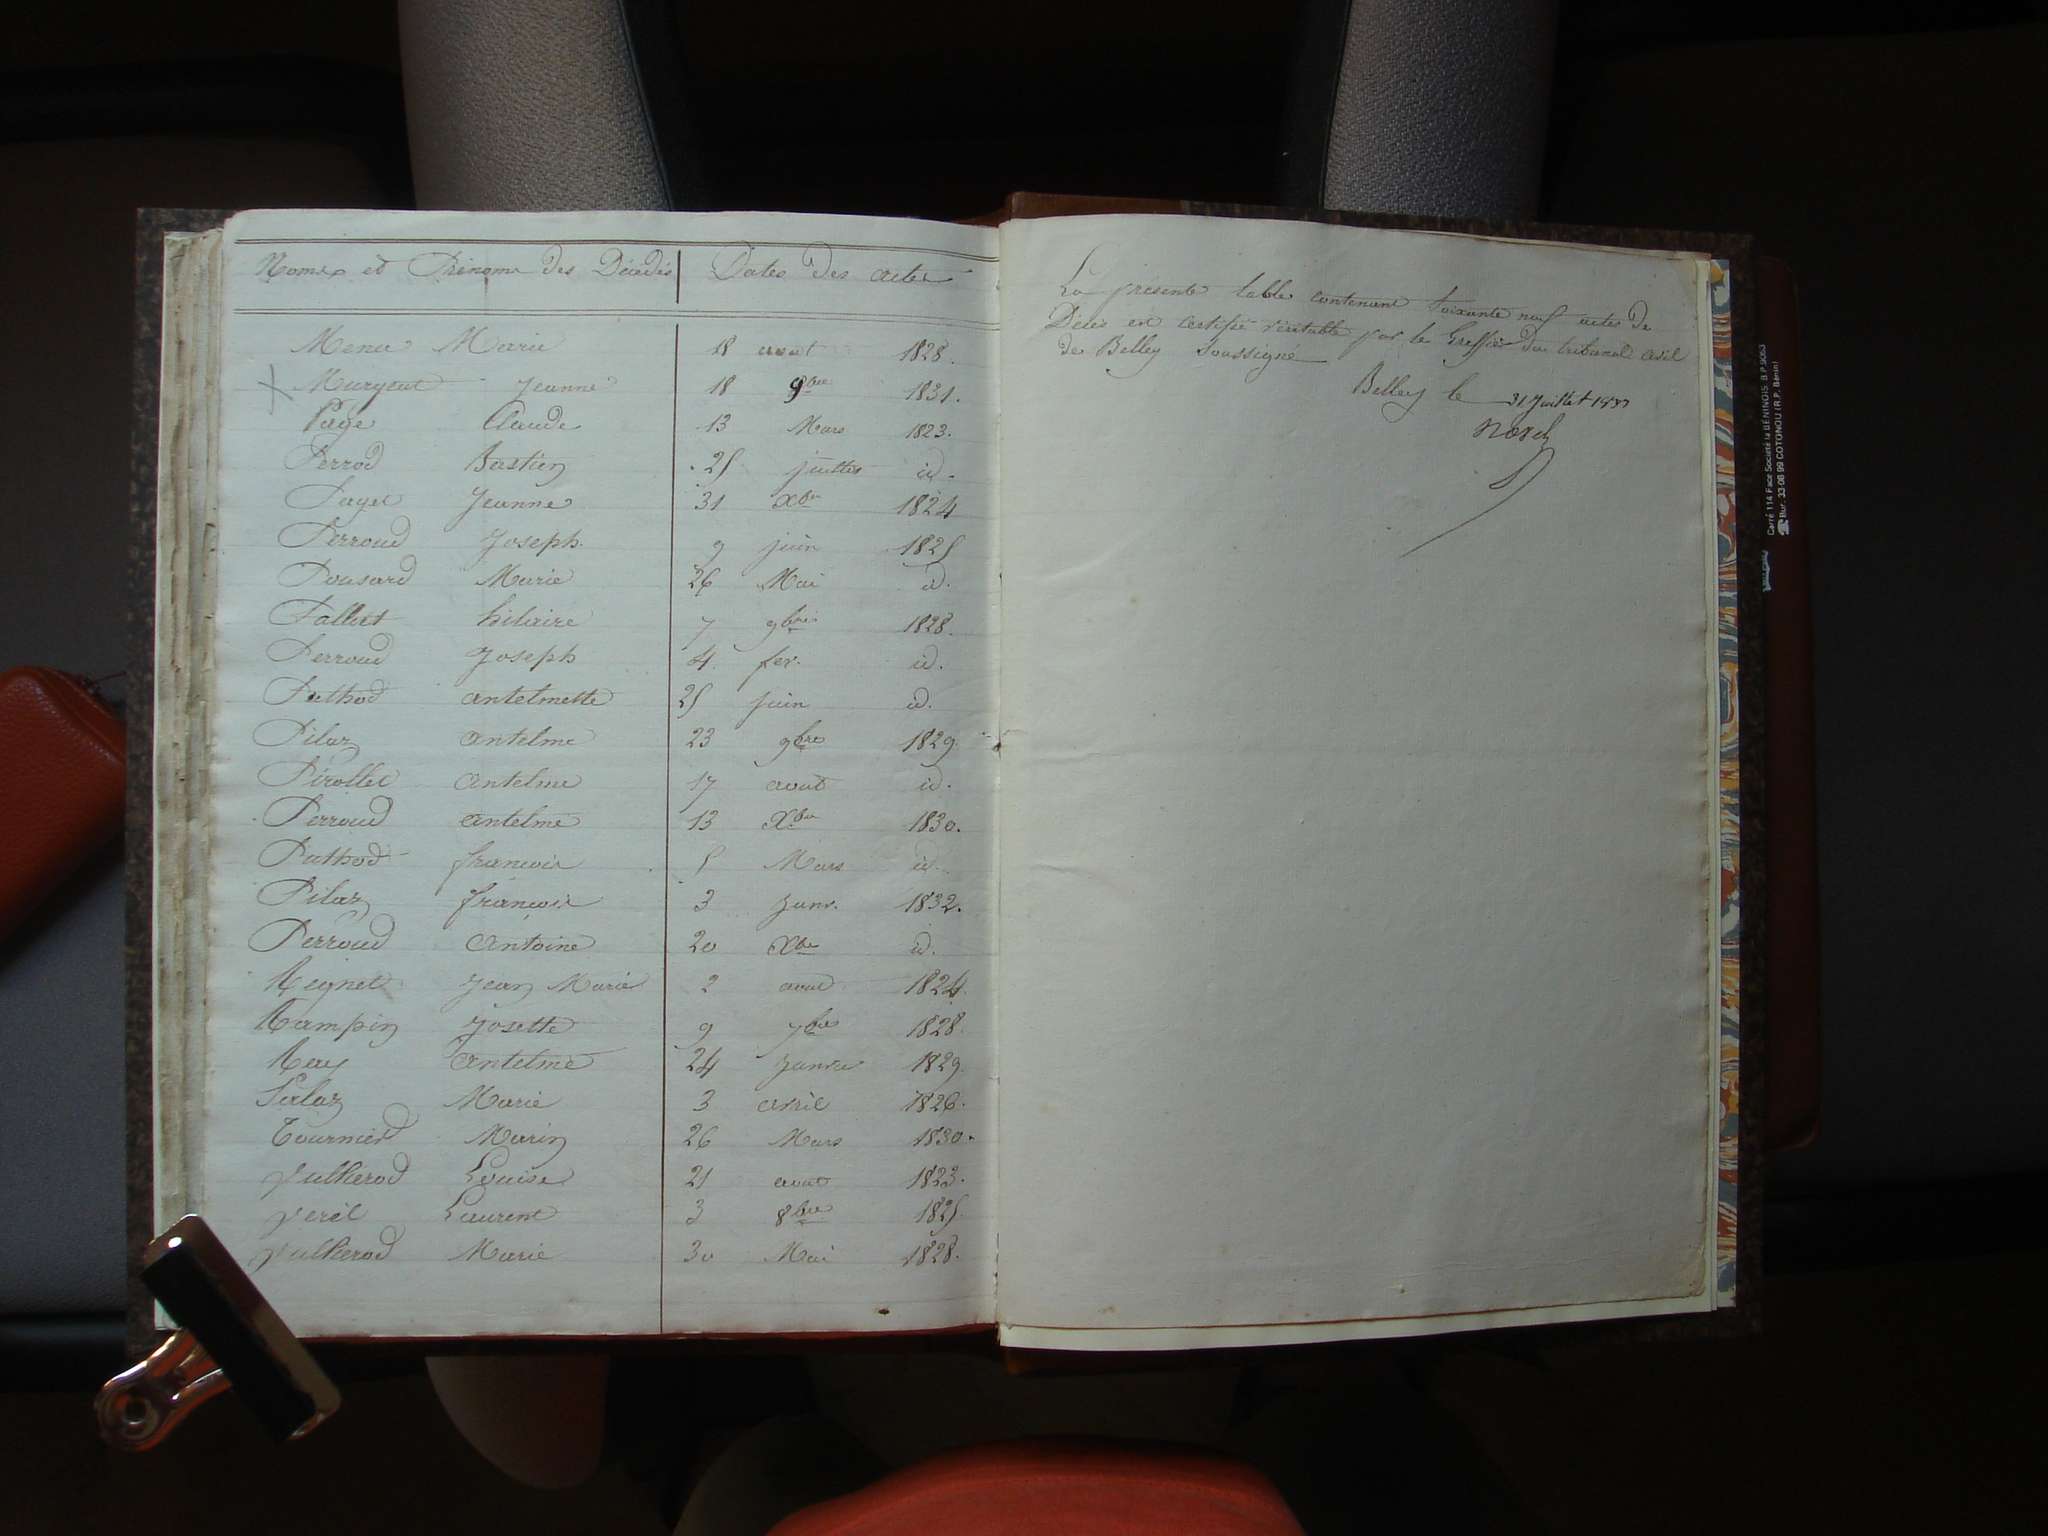 Noms et Prénoms des Décédés Dates des actes
Menu Marie 18 aout 1828.
Murgeut Jeanne 18 9bre 1831.
Page Claude 13 Mars 1823.
Perrod Bastien 25 juillet id.
Jeanne 31 Xbre 1824
Perroud Joseph 9 juin 1825
Pousard Marie 26 Mai id.
hilaire 7 9bre 1828.
Perroud Joseph 4. fev. id.
Puthod antelmette 25 juin id.
Pilaz antelme 23 9bre 1829.
Pirollet antelme 17 aout id.
Perroud antelme 13 Xbre 1830.
Puthod francois 5 Mars id.
Pilaz francois 3 Janv. 1832.
Perroud antoine 20 Xbre id.
Reignet Jean Marie 2 aout 1824.
Rampin Josette 9 7bre 1828.
Rey antelme 24 Janvier 1829.
Marie 3 avril 1826.
Tournier Marin 26 Mars 1830.
Vulherod Louise 21 aout 1823.
Laurent 3 8bre 1825
Vulherod Marie 30 Mai 1828.
La présente table contenant soixante neuf actes de
Décès est certifié véritable par le Greffier du tribunal civil
de Belley soussigné
Belley le 31 Juillet 1833
Carré 114 Face Société la BÉNINOIS B.P.9063
Bur. 33 08 99 COTONOU (R.P. Bénin)